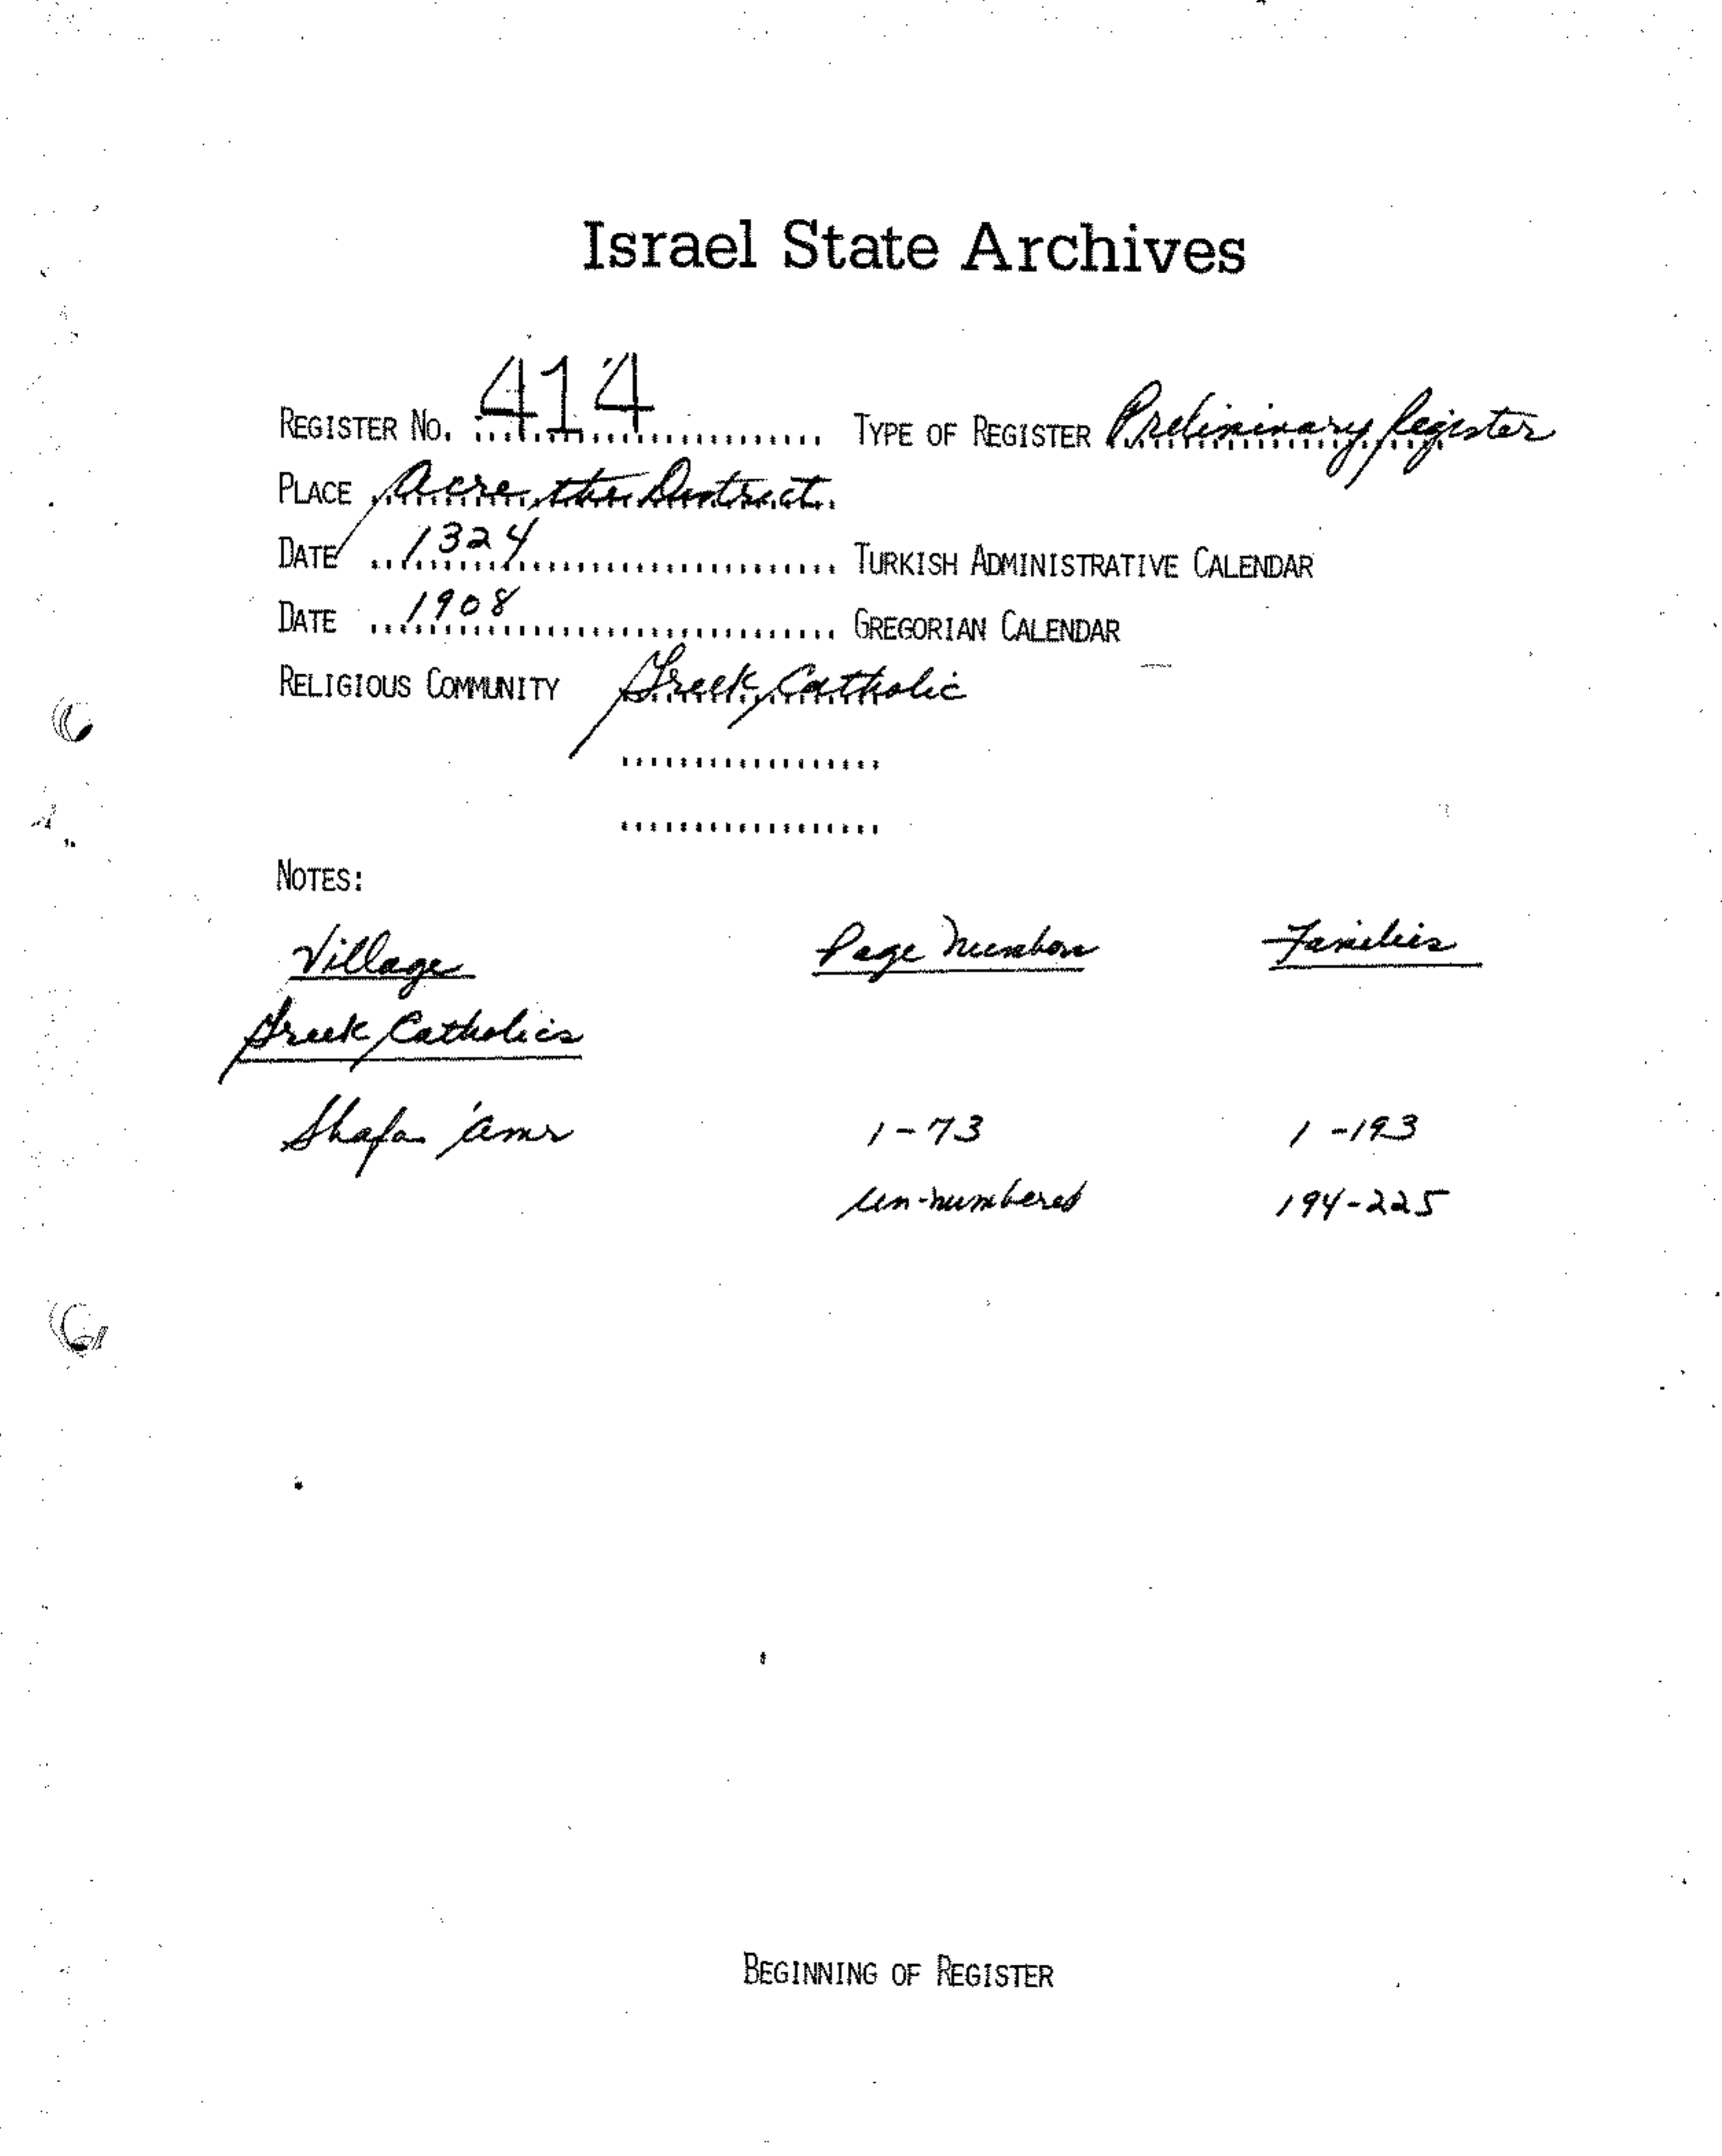 Israel State Archives
REGISTER NO. 414 TYPE OF REGISTER Preliminary Register
PLACE Acre, the District
DATE 1324 TURKISH ADMINISTRATIVE CALENDAR
DATE 1908 GREGORIAN CALENDAR
RELIGIOUS COMMUNITY Greek Catholic
NOTES:
Village Page Numbers Families
Greek Catholics
Shafa 'amr 1-73 1-193
Un-numbered 194-225
BEGINNING OF REGISTER